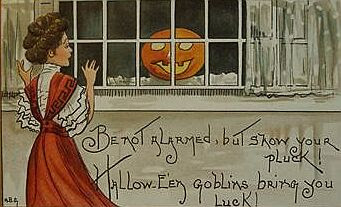 Be not alarmed, but show your
pluck!
Hallow-E'en goblins bring you
luck!